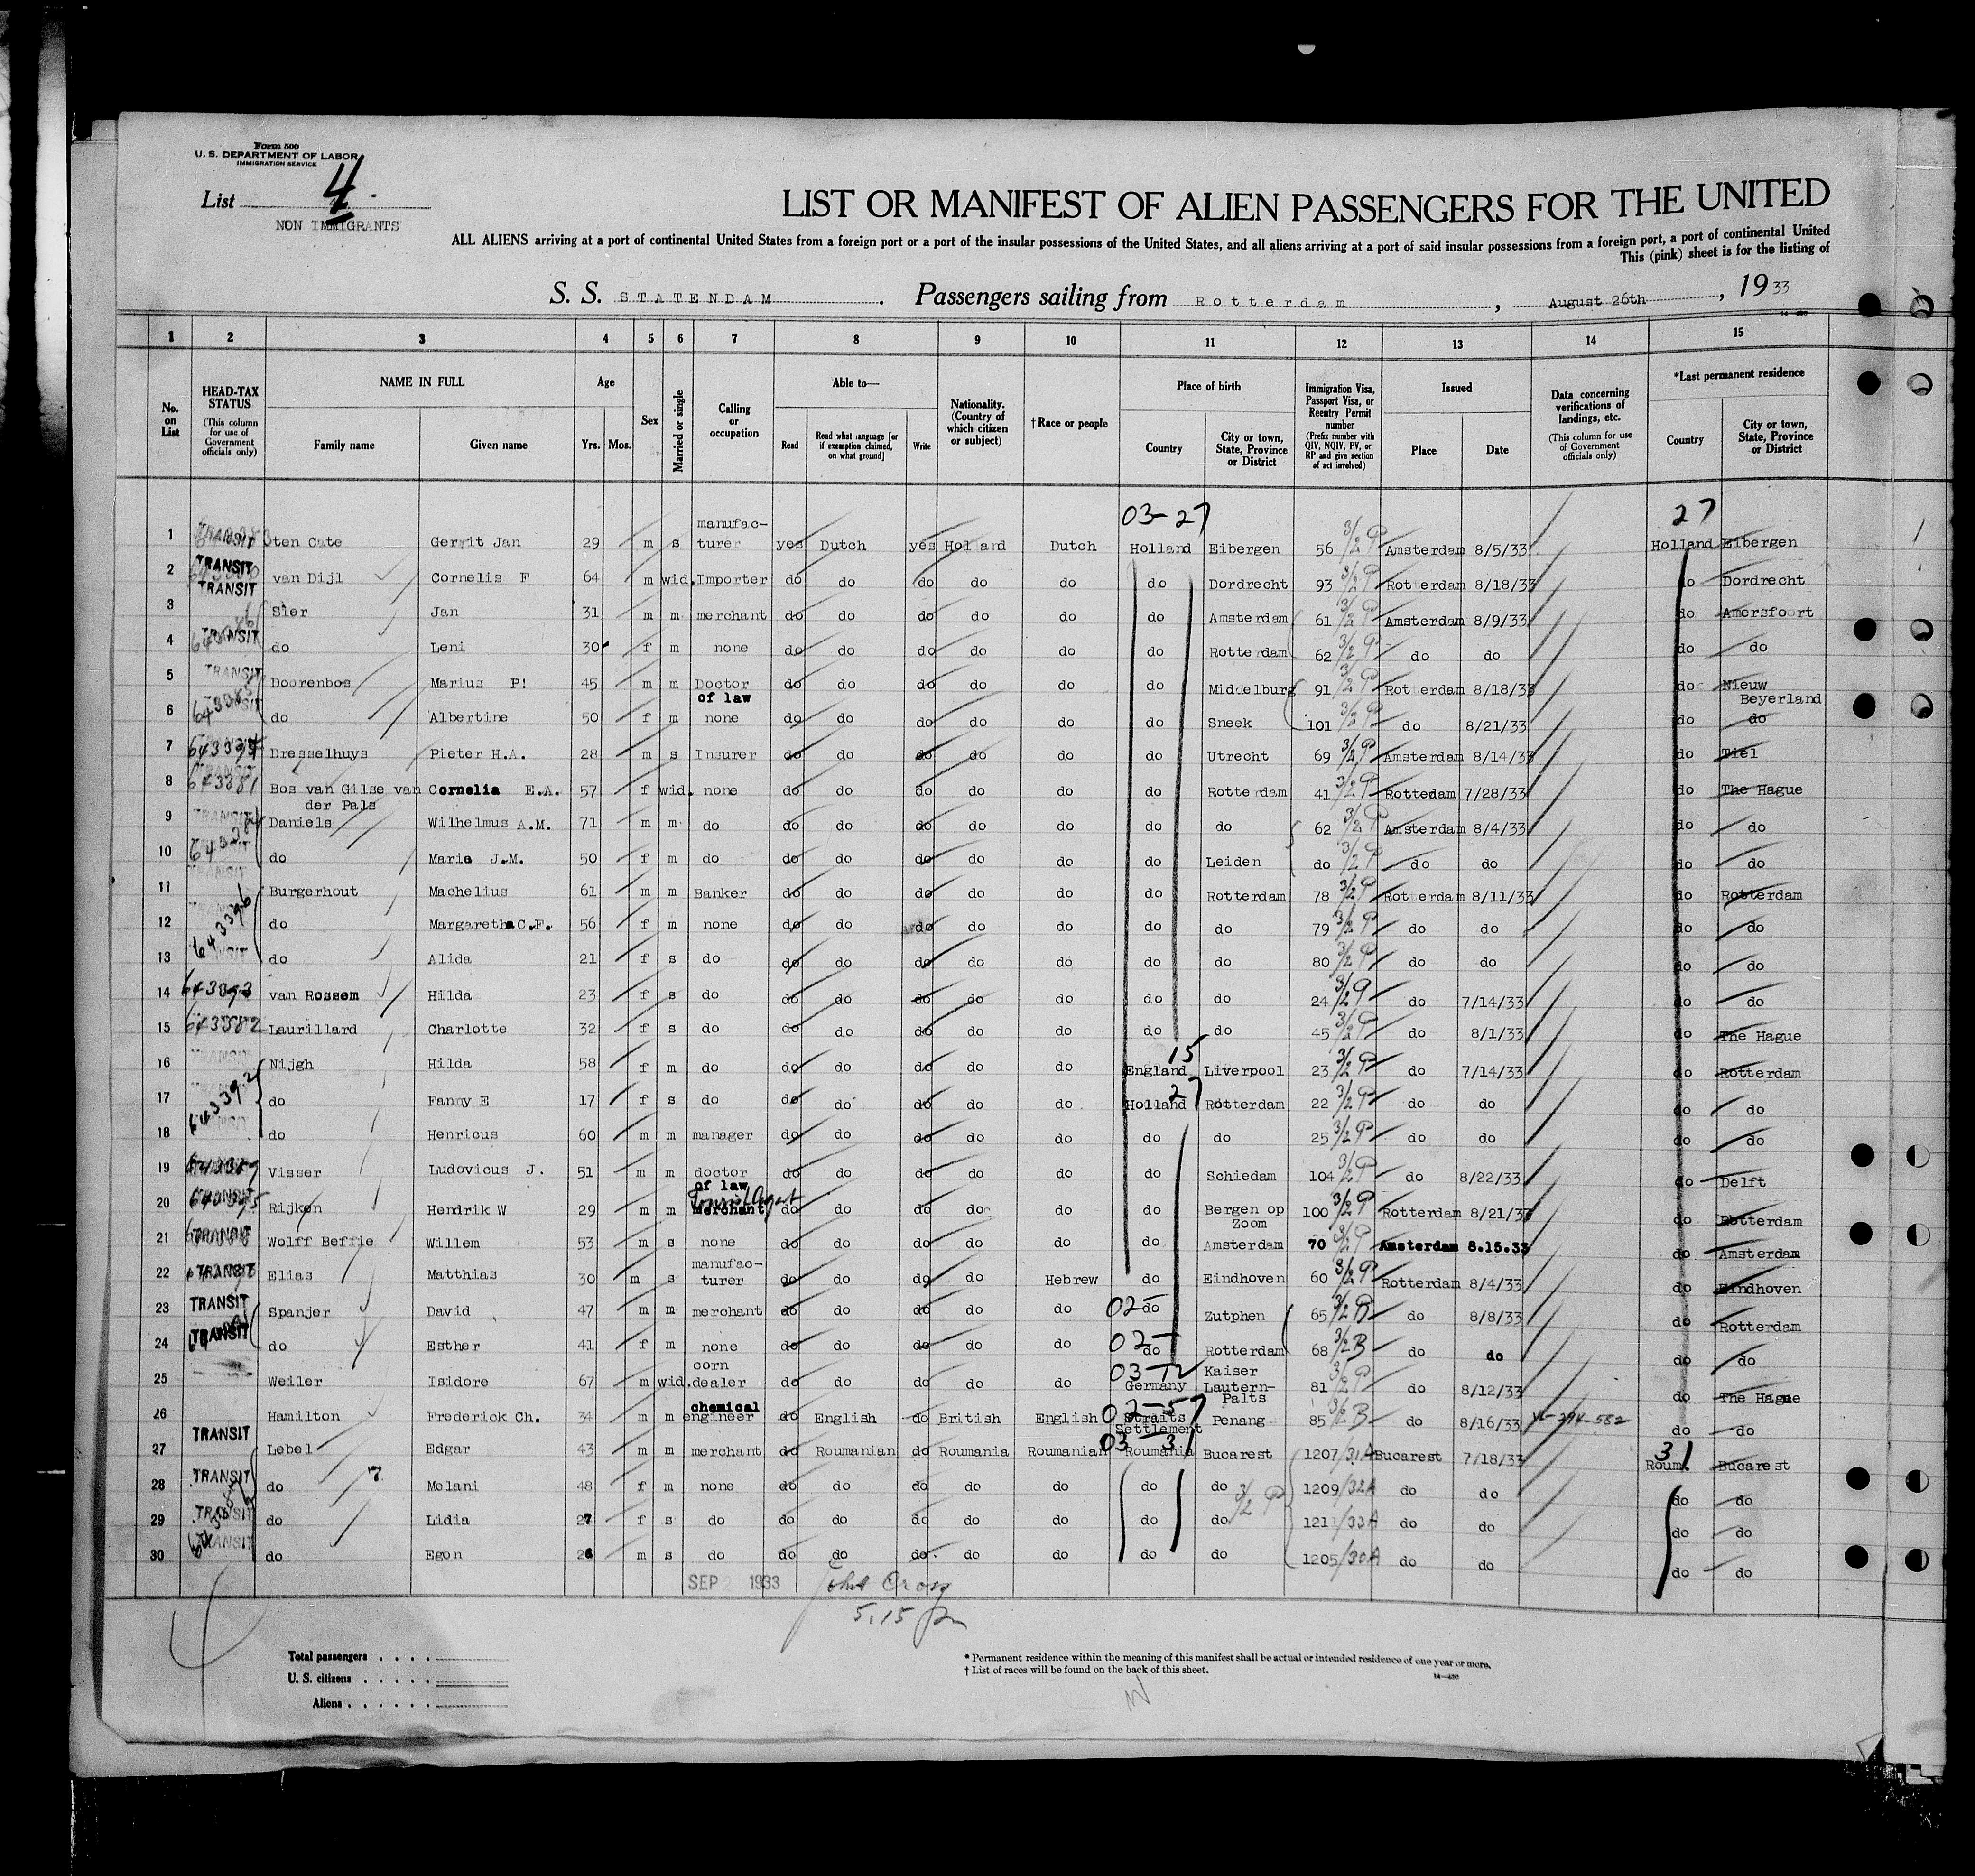 Form 500
U. S. DEPARTMENT OF LABOR
IMMIGRATION SERVICE
List 4
NON IMMIGRANTS
LIST OR MANIFEST OF ALIEN PASSENGERS FOR THE UNITED
ALL ALIENS arriving at a port of continental United States from a foreign port or a port of the insular possessions of the United States, and all aliens arriving at a port of said insular possessions from a foreign port, a port of continental United
This (pink) sheet is for the listing of
S. S. STATENDAM. Passengers sailing from Rotterdam, August 26th, 1933
1 2 3 4 5 6 7 8 9 10 11 12 13 14 15
No. on List
HEAD-TAX STATUS (This column for use of Government officials only)
NAME IN FULL
Family name Given name
Age
Yrs. Mos.
Sex
Married or single
Calling or occupation
Able to—
Read Read what language [or if exemption claimed, on what ground] Write
Nationality. (Country of which citizen or subject)
†Race or people
Place of birth
Country City or town, State, Province or District
Immigration Visa, Passport Visa, or Reentry Permit number (Prefix number with QIV, NQIV, PV, or RP and give section of act involved)
Issued
Place Date
Data concerning verifications of landings, etc. (This column for use of Government officials only)
*Last permanent residence
Country City or town, State, Province or District
03-27 27
1 TRANSIT ten Cate Gerrit Jan 29 m s manufacturer yes Dutch yes Holland Dutch Holland Eibergen 56 3/2 P Amsterdam 8/5/33 Holland Eibergen
2 TRANSIT van Dijl Cornelis F 64 m wid. Importer do do do do do do Dordrecht 93 3/2 P Rotterdam 8/18/33 do Dordrecht
3 TRANSIT Sier Jan 31 m m merchant do do do do do do Amsterdam 61 3/2 P Amsterdam 8/9/33 do Amersfoort
4 TRANSIT do Leni 30 f m none do do do do do do Rotterdam 62 3/2 P do do do do
5 TRANSIT Doorenbos Marius P! 45 m m Doctor of law do do do do do do Middelburg 91 3/2 P Rotterdam 8/18/33 do Nieuw Beyerland
6 do Albertine 50 f m none do do do do do do Sneek 101 3/2 P do 8/21/33 do do
7 Dresselhuys Pieter H.A. 28 m s Insurer do do do do do do Utrecht 69 3/2 P Amsterdam 8/14/33 do Tiel
8 643381 Bos van Gilse van der Pals Cornelia E.A. 57 f wid. none do do do do do do Rotterdam 41 3/2 P Rottedam 7/28/33 do The Hague
9 TRANSIT Daniels Wilhelmus A.M. 71 m m do do do do do do do do 62 3/2 P Amsterdam 8/4/33 do do
10 do Maria J.M. 50 f m do do do do do do do Leiden do 3/2 P do do do do
11 TRANSIT Burgerhout Machelius 61 m m Banker do do do do do do Rotterdam 78 3/2 P Rotterdam 8/11/33 do Rotterdam
12 643396 do Margaretha C.F. 56 f m none do do do do do do do 79 3/2 P do do do do
13 do Alida 21 f s do do do do do do do do 80 3/2 P do do do do
14 643393 van Rossem Hilda 23 f s do do do do do do do do 24 3/2 P do 7/14/33 do do
15 643382 Laurillard Charlotte 32 f s do do do do do do do do 45 3/2 P do 8/1/33 do The Hague
15
16 TRANSIT Nijgh Hilda 58 f m do do do do do do England Liverpool 23 3/2 P do 7/14/33 do Rotterdam
27
17 643392 do Fanny E 17 f s do do do do do do Holland Rotterdam 22 3/2 P do do do do
18 do Henricus 60 m m manager do do do do do do do 25 3/2 P do do do do
19 Visser Ludovicus J. 51 m m doctor of law do do do do do do Schiedam 104 3/2 P do 8/22/33 do Delft
20 Rijken Hendrik W 29 m m Tourist Agent Merchant do do do do do do Bergen op Zoom 100 3/2 P Rotterdam 8/21/33 do Rotterdam
21 TRANSIT Wolff Beffie Willem 53 m s none do do do do do do Amsterdam 70 3/2 P Amsterdam 8.15.33 do Amsterdam
22 TRANSIT Elias Matthias 30 m s manufacturer do do do do Hebrew do Eindhoven 60 3/2 P Rotterdam 8/4/33 do Eindhoven
23 TRANSIT Spanjer David 47 m m merchant do do do do do 02- do Zutphen 65 3/2 B do 8/8/33 do Rotterdam
24 TRANSIT do Esther 41 f m none do do do do do 02- do Rotterdam 68 3/2 B do do do do
25 Weiler Isidore 67 m wid. corn dealer do do do do do 03-12 Germany Kaiser Lautern-Palts 81 3/2 P do 8/12/33 do The Hague
26 Hamilton Frederick Ch. 34 m m chemical engineer do English do British English 02-57 Straits Settlement Penang 85 3/2 B do 8/16/33 do do
27 TRANSIT Lebel Edgar 43 m m merchant do Roumanian do Roumania Roumanian 03 31 Roumania Bucarest 1207/31A Bucarest 7/18/33 31 Roum. Bucarest
28 TRANSIT do Melani 48 f m none do do do do do do do 1209/32A do do do do
29 TRANSIT do Lidia 27 f s do do do do do do do do 3/2 P 1211/33A do do do do
30 TRANSIT do Egon 26 m s do do do do do do do do 1205/30A do do do do
SEP 2 1933
5.15 pm
Total passengers . . . .
U. S. citizens . . . . .
Aliens . . . . . .
* Permanent residence within the meaning of this manifest shall be actual or intended residence of one year or more.
† List of races will be found on the back of this sheet.